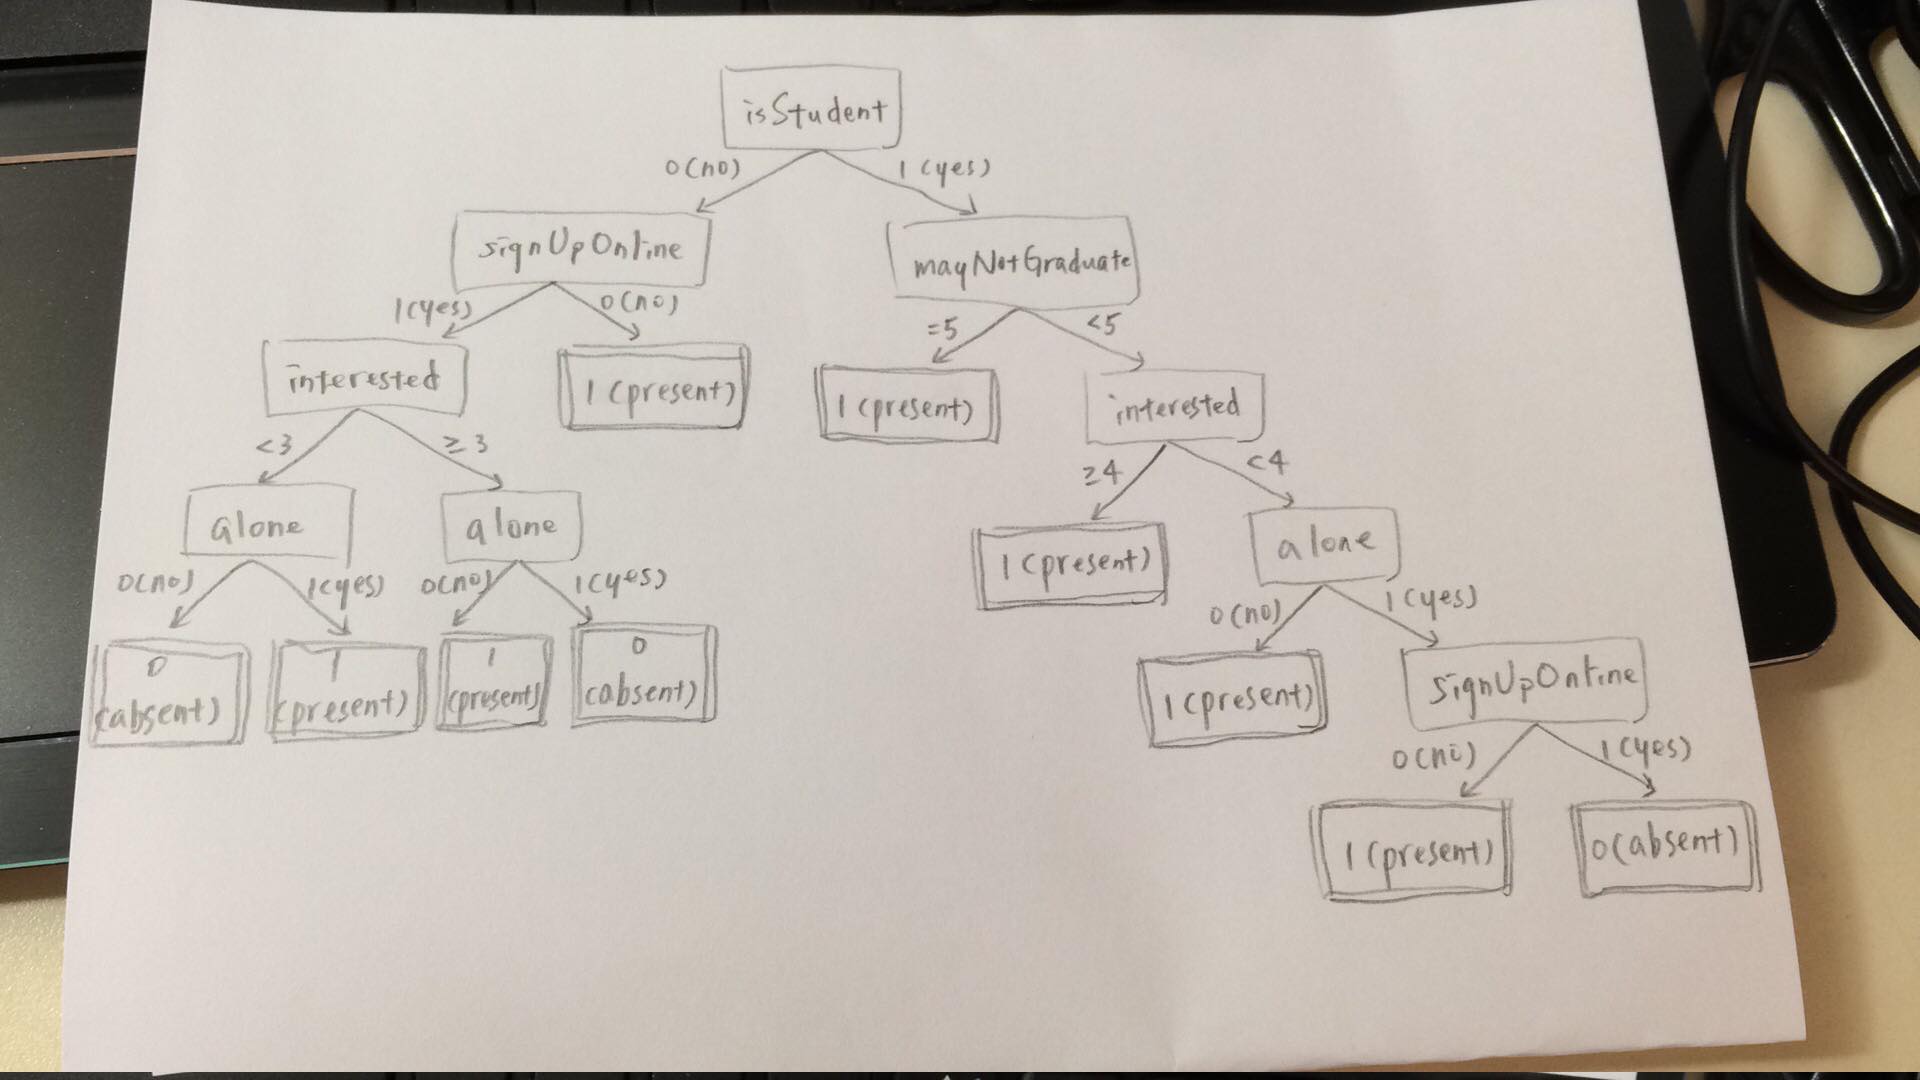 isStudent
0(no)
1(yes)
signUpOnline
mayNotGraduate
1(yes)
0(no)
=5
<5
interested
1(present)
1(present)
interested
<3
≥3
≥4
<4
alone
alone
1(present)
alone
0(no)
1(yes)
0(no)
1(yes)
0(no)
1(yes)
0
(absent)
1
(present)
1
(present)
0
(absent)
1(present)
signUpOnline
0(no)
1(yes)
1(present)
0(absent)